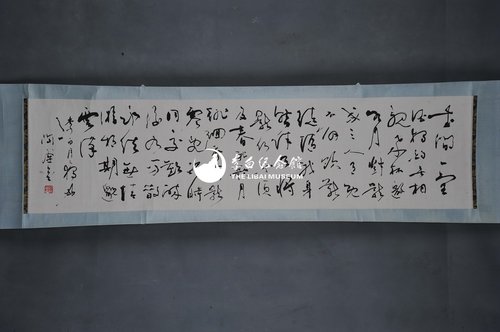 花間一壺
酒獨酌無相
親舉杯邀
明月對影
成三人月既
不解飲影
徒隨我身
暫伴月將
影行樂須
及春我歌月
徘徊我舞影
零亂醒時
同交歡醉
後各分散
永結無情
遊相期邈
雲漢
李白月下獨酌
李白纪念馆
THE LIBAI MUSEUM